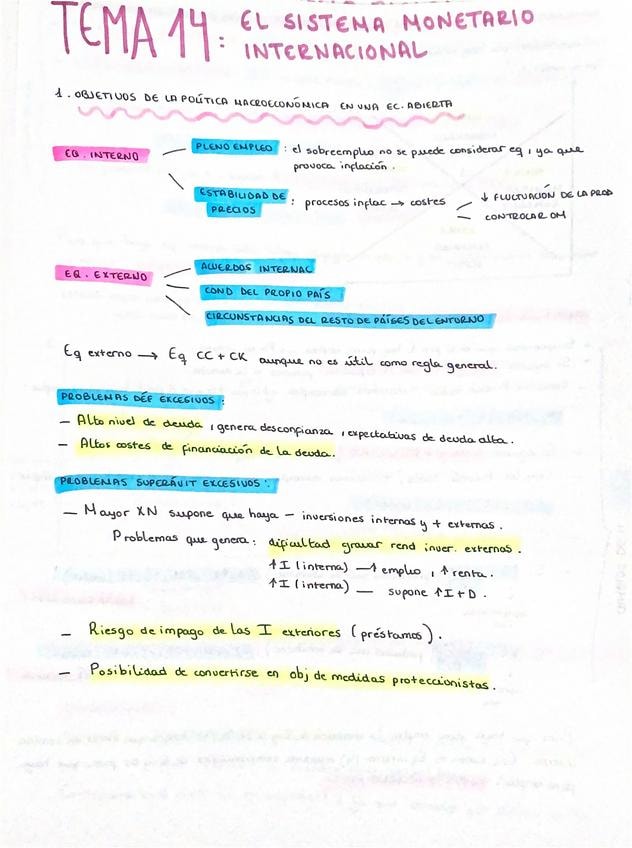 TEMA 14: EL SISTEMA MONETARIO
INTERNACIONAL
1. OBJETIVOS DE LA POLÍTICA MACROECONÓMICA EN UNA EC. ABIERTA
EQ. INTERNO
PLENO EMPLEO : el sobreempleo no se puede considerar eq, ya que
provoca inflación.
ESTABILIDAD DE
PRECIOS : procesos inflac → costes
↓ FLUCTUACIÓN DE LA PROD
CONTROLAR OM
EQ. EXTERNO
ACUERDOS INTERNAC
COND DEL PROPIO PAÍS
CIRCUNSTANCIAS DEL RESTO DE PAÍSES DEL ENTORNO
Eq externo → Eq CC + CK aunque no es útil como regla general.
PROBLEMAS DEF EXCESIVOS:
— Alto nivel de deuda, genera desconfianza, expectativas de deuda alta.
— Altos costes de financiación de la deuda.
PROBLEMAS SUPERÁVIT EXCESIVOS:
— Mayor XN supone que haya — inversiones internas y + externas.
Problemas que genera: dificultad gravar rend inver. externos.
↑ I (interna) — ↑ empleo, ↑ renta.
↑ I (interna) — supone ↑ I+D.
— Riesgo de impago de las I exteriores (préstamos).
— Posibilidad de convertirse en obj de medidas proteccionistas.